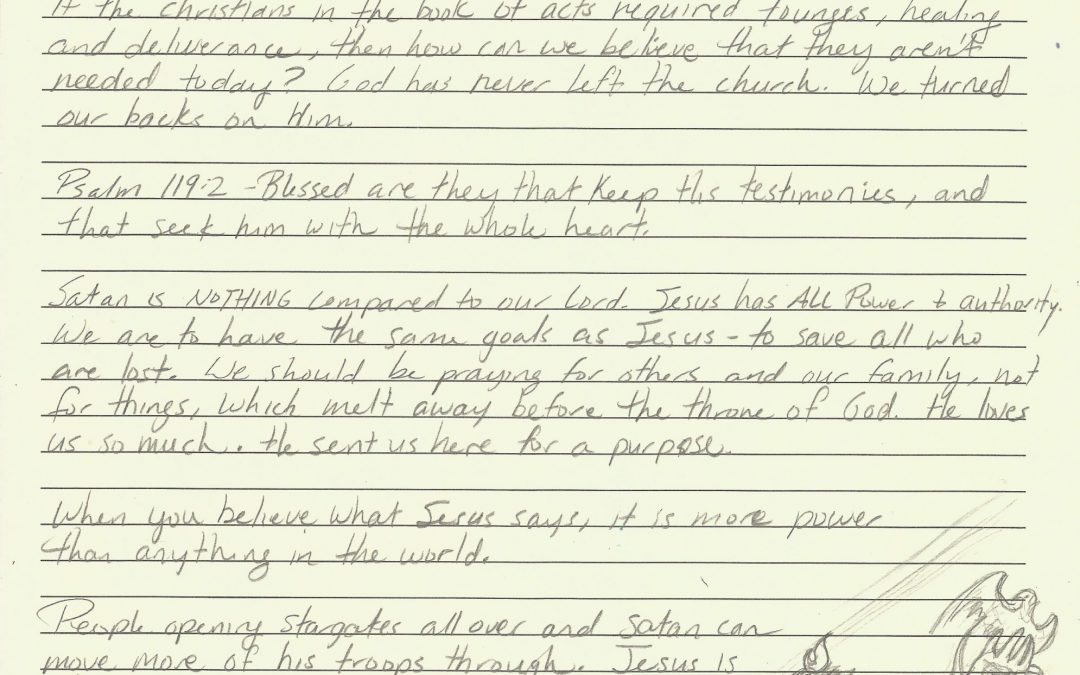 If the christians in the book of acts required tounges, healing
and deliverance, then how can we believe that they aren't
needed today? God has never left the church. We turned
our backs on Him.
Psalm 119:2 - Blessed are they that keep His testimonies, and
that seek him with the whole heart.
Satan is NOTHING compared to our Lord. Jesus has ALL Power & authority.
We are to have the same goals as Jesus - to save all who
are lost. We should be praying for others and our family, not
for things, which melt away before the throne of God. He loves
us so much. He sent us here for a purpose.
When you believe what Jesus says, it is more power
than anything in the world.
People opening stargates all over and Satan can
move more of his troops through. Jesus is